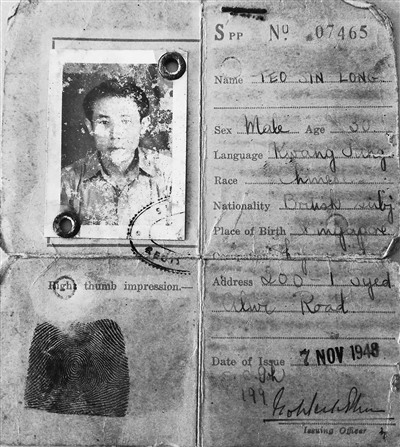 SPP No 07465
Name TEO SIN LONG
Sex Male Age
Language Kwang Tung
Race Chinese
Nationality British Subj
Place of Birth Singapore
Right thumb impression.—
Address 200 1 Syed
Alwi Road.
Date of Issue 7 NOV 1948
199
Issuing Officer